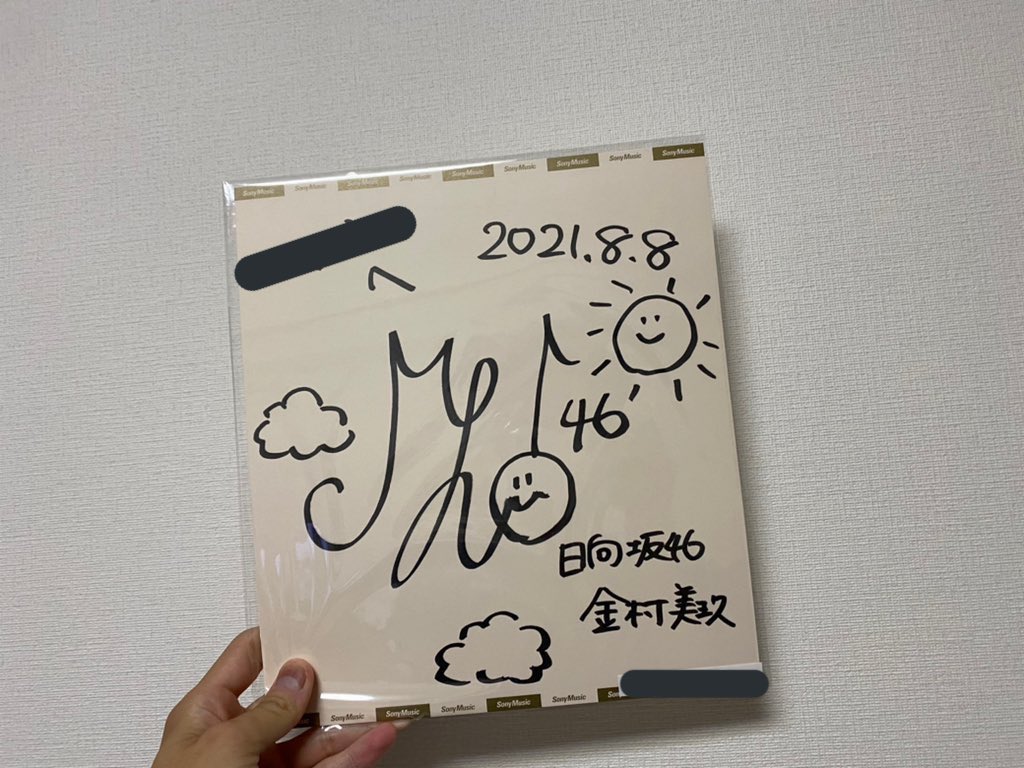 SonyMusic SonyMusic SonyMusic SonyMusic SonyMusic SonyMusic SonyMusic SonyMusic SonyMusic
へ
2021.8.8
46
日向坂46
金村美玖
SonyMusic SonyMusic SonyMusic SonyMusic